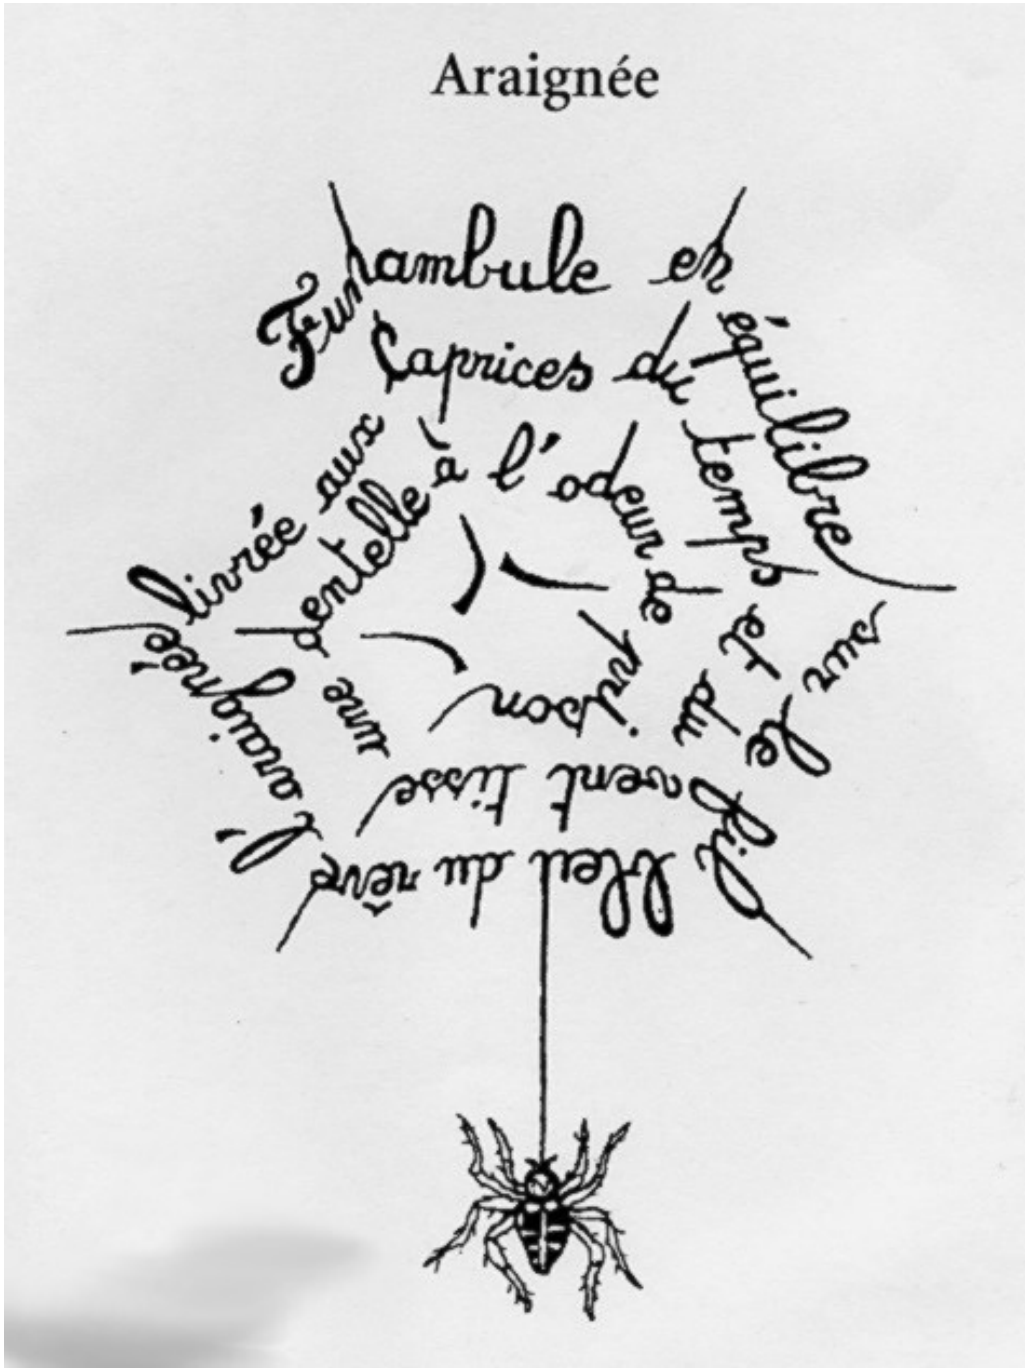 Araignée
Funambule en équilibre sur le fil bleu du rêve l'araignée
livrée aux caprices du temps et du vent tisse une
dentelle à l'odeur de prison